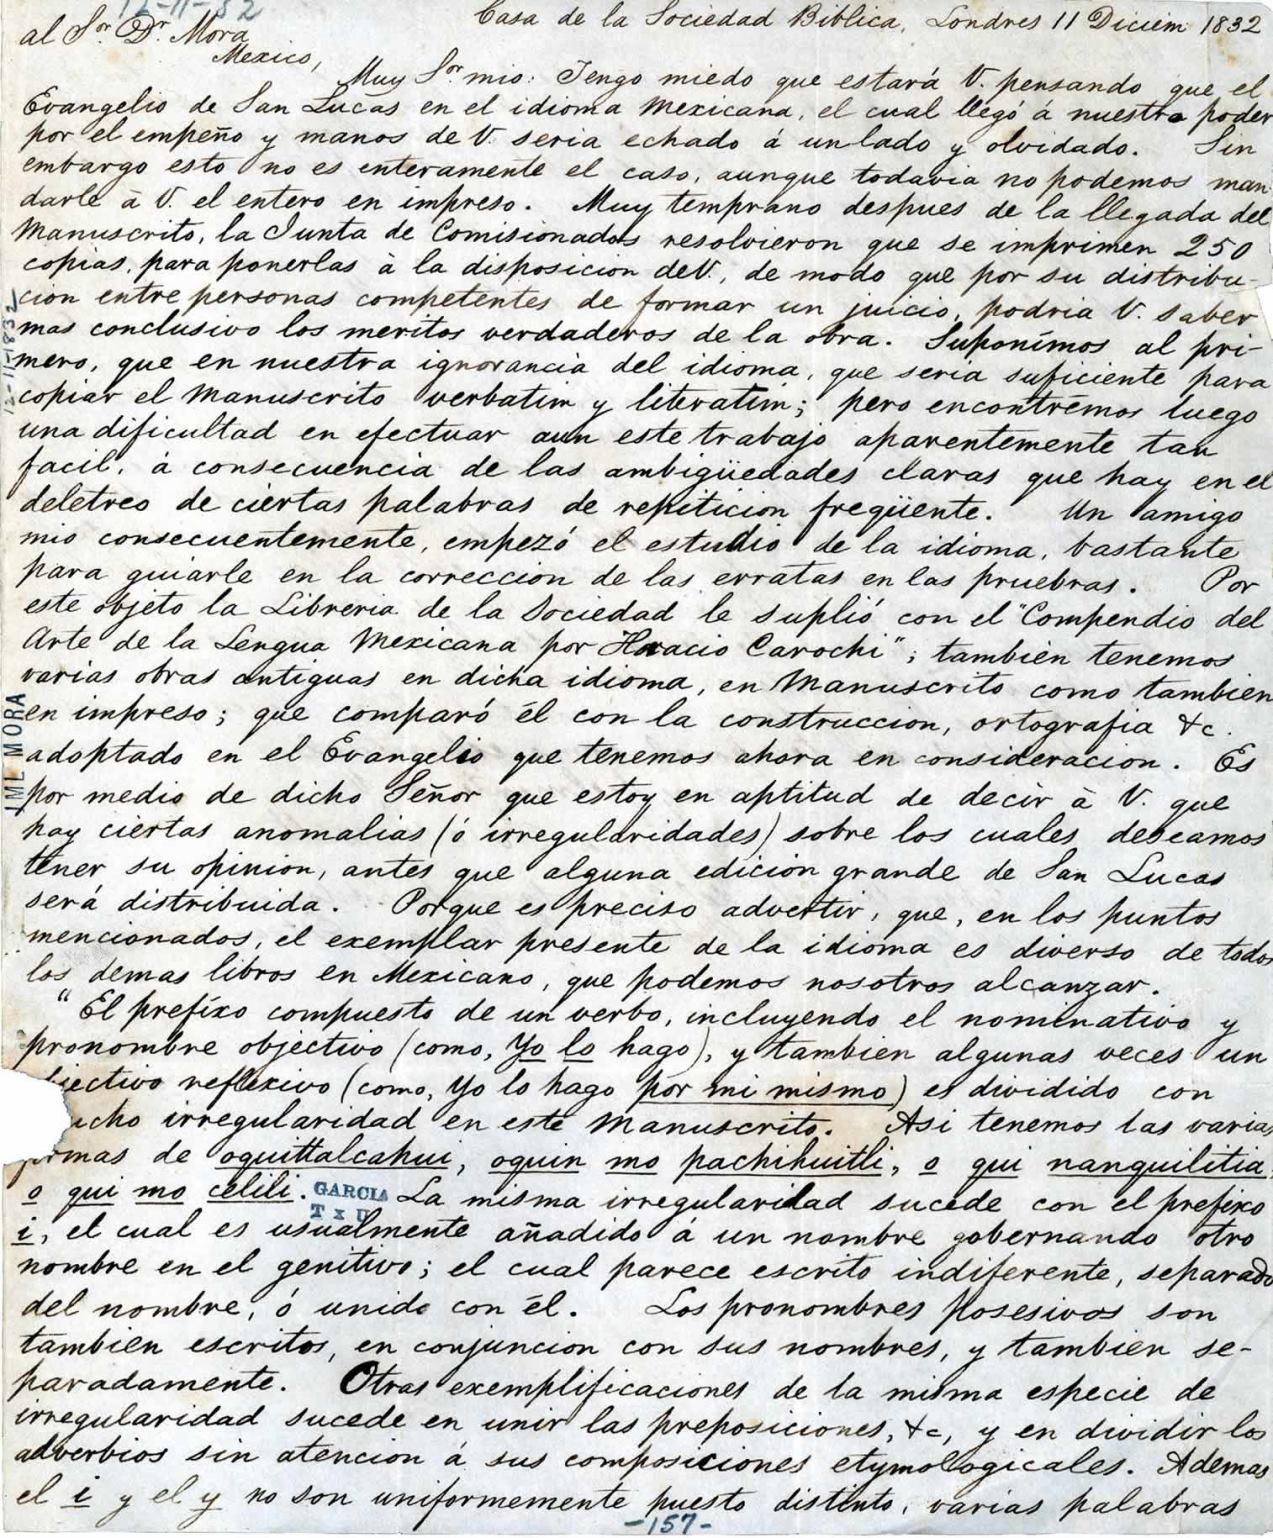 12-11-32
Casa de la Sociedad Biblica, Londres 11 Diciem 1832
al Sor. Dr. Mora
Mexico,
Muy Sor mio: Tengo miedo que estará V. pensando que el
Evangelio de San Lucas en el idioma Mexicana, el cual llegó á nuestro poder
por el empeño y manos de V. seria echado á un lado y olvidado. Sin
embargo esto no es enteramente el caso, aunque todavia no podemos man-
darle à V. el entero en impreso. Muy temprano despues de la llegada del
Manuscrito, la Junta de Comisionados resolvieron que se imprimen 250
copias, para ponerlas à la disposicion de V., de modo que por su distribu-
cion entre personas competentes de formar un juicio, podria V. saber
mas conclusivo los meritos verdaderos de la obra. Suponímos al pri-
mero, que en nuestra ignorancia del idioma, que seria suficiente para
copiar el Manuscrito verbatim y literatim; pero encontrémos luego
una dificultad en efectuar aun este trabajo aparentemente tan
facil, á consecuencia de las ambigüedades claras que hay en el
deletreo de ciertas palabras de repiticion freqüente. Un amigo
mio consecuentemente, empezó el estudio de la idioma, bastante
para guiarle en la correccion de las erratas en las pruebras. Por
este objeto la Libreria de la Sociedad le suplió con el "Compendio del
Arte de la Lengua Mexicana por Horacio Carochi"; también tenemos
varias obras antiguas en dicha idioma, en Manuscrito como tambien
en impreso; que comparó él con la construccion, ortografia &c.
adoptado en el Evangelio que tenemos ahora en consideracion. Es
por medio de dicho Señor que estoy en aptitud de decir à V. que
hay ciertas anomalias (ó irregularidades) sobre los cuales deseamos
tener su opinion, antes que alguna edicion grande de San Lucas
será distribuida. Porque es preciso advertir, que, en los puntos
mencionados, el exemplar presente de la idioma es diverso de todos
los demas libros en Mexicano, que podemos nosotros alcanzar.
"El prefíxo compuesto de un verbo, incluyendo el nominativo y
pronombre objectivo (como, Yo lo hago), y tambien algunas veces un
jectivo reflexivo (como, Yo lo hago por mi mismo) es dividido con
ucho irregularidad en este Manuscrito. Asi tenemos las varias
rmas de oquittalcahui, oquin mo pachihuitli, o qui nanquilitia,
o qui mo celili. La misma irregularidad sucede con el prefixo
i, el cual es usualmente añadido á un nombre gobernando otro
nombre en el genitivo; el cual parece escrito indiferente, separado
del nombre, ó unido con él. Los pronombres posesivos son
tambien escritos, en conjuncion con sus nombres, y tambien se-
paradamente. Otras exemplificaciones de la misma especie de
irregularidad sucede en unir las preposiciones, &c, y en dividir los
adverbios sin atencion á sus composiciones etymologicales. Ademas
el i y el y no son uniformemente puesto distinto, varias palabras
-157-
12-11-1832
JML MORA
GARCIA
TxU